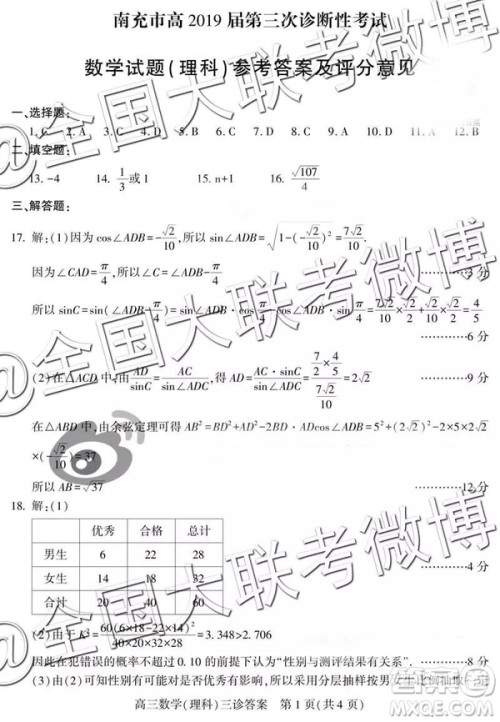 南充市高2019届第三次诊断性考试
数学试题(理科)参考答案及评分意见
一、选择题:
1. C 2. A 3. D 11. A 12. B
二、填空题:
13. -4 14. 1/3或1 15. n+1 16. √107/4
三、解答题:
17. 解:(1)因为cos∠ADB=-√2/10,所以sin∠ADB=√(1-(-√2/10)²)=7√2/10
因为∠CAD=π/4,所以∠C=∠ADB-π/4 3分
所以sinC=sin(∠ADB-π/4)=sin∠ADB·cosπ/4-cos∠ADB·sinπ/4=7√2/10×√2/2+√2/10×√2/2=4/5
6分
(2)在△ACD中,由AD/sinC=AC/sin∠ADC,得AD=AC·sinC/sin∠ADC=(7/2×4/5)/(7√2/10)=2√2 9分
在△ABD中,由余弦定理可得AB²=BD²+AD²-2BD·ADcos∠ADB=5²+(2√2)²-2×5×2√2
×(-√2/10)=37
所以AB=√37 12分
18. 解:(1)
优秀 合格 总计
男生 6 22 28
女生 14 18 32
合计 20 40 60
4分
(2)由于K²=60(6×18-22×14)²/(40×20×32×28)=3.348>2.706
因此在犯错误的概率不超过0.10的前提下认为“性别与测评结果有关系”. 8分
(3)由(2)可知性别有可能对是否优秀有影响,所以采用分层抽样按男女生比例抽取一定
高三数学(理科)三诊答案 第1页(共4页)
@全国大联考微博
@全国大联考微博
@全国大联考微博
答案圈
MXQE.COM